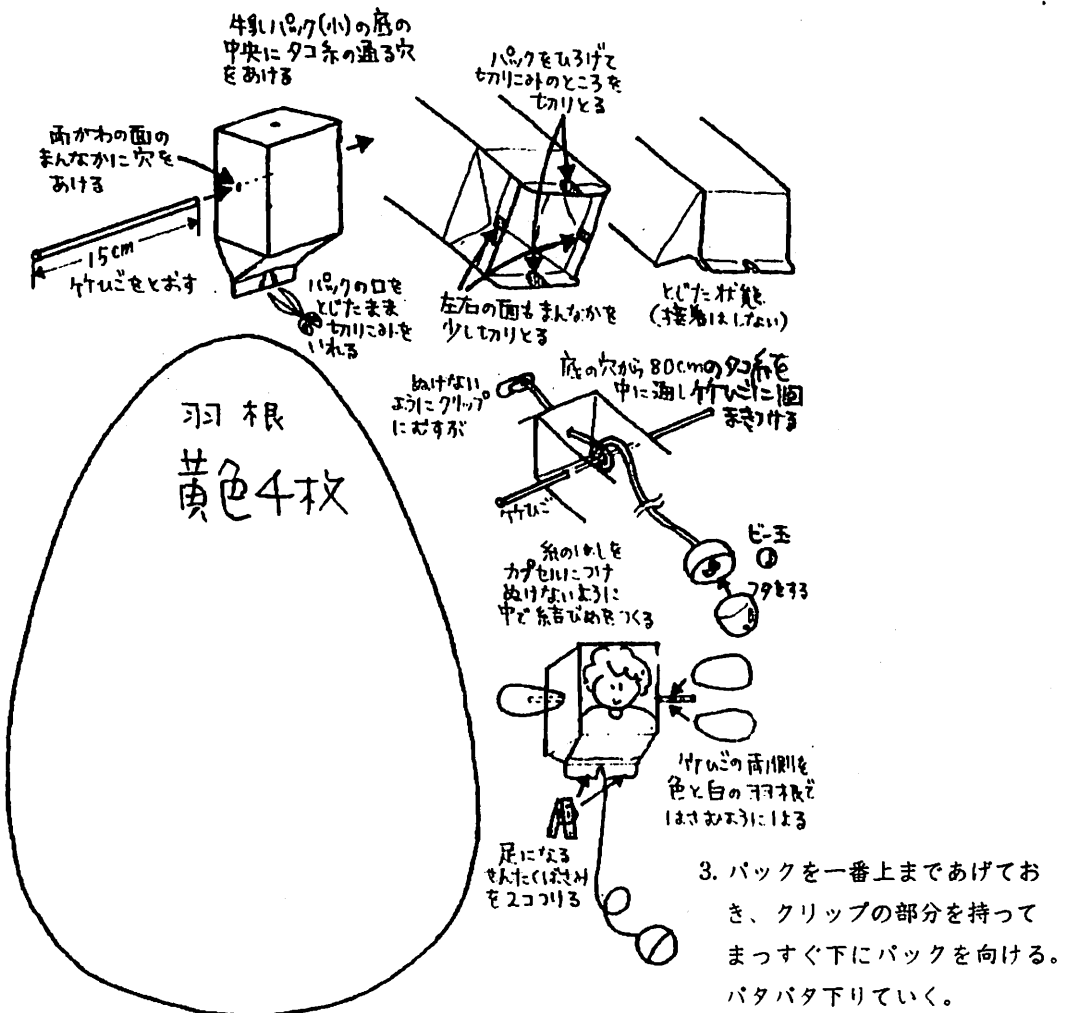 牛乳パック(小)の底の
中央にタコ糸の通る穴
をあける
両がわの面の
まんなかに穴を
あける
15cm
竹ひごをとおす
パックの口を
とじたまま
切りこみを
いれる
パックをひろげて
切りこみのところを
切りとる
左右の面もまんなかを
少し切りとる
とじた状態
(接着はしない)
羽根
黄色4枚
ぬけない
ようにクリップ
にむすぶ
底の穴から80cmのタコ糸を
中に通し竹ひごに
まきつける
竹ひご
ビー玉
フタをする
糸のはしを
カプセルにつけ
ぬけないように
中で結びめをつくる
竹ひごの両側を
色と白の羽根で
はさむようにはる
足になる
せんたくばさみ
を2コつける
3. パックを一番上まであげてお
き、クリップの部分を持って
まっすぐ下にパックを向ける。
パタパタ下りていく。